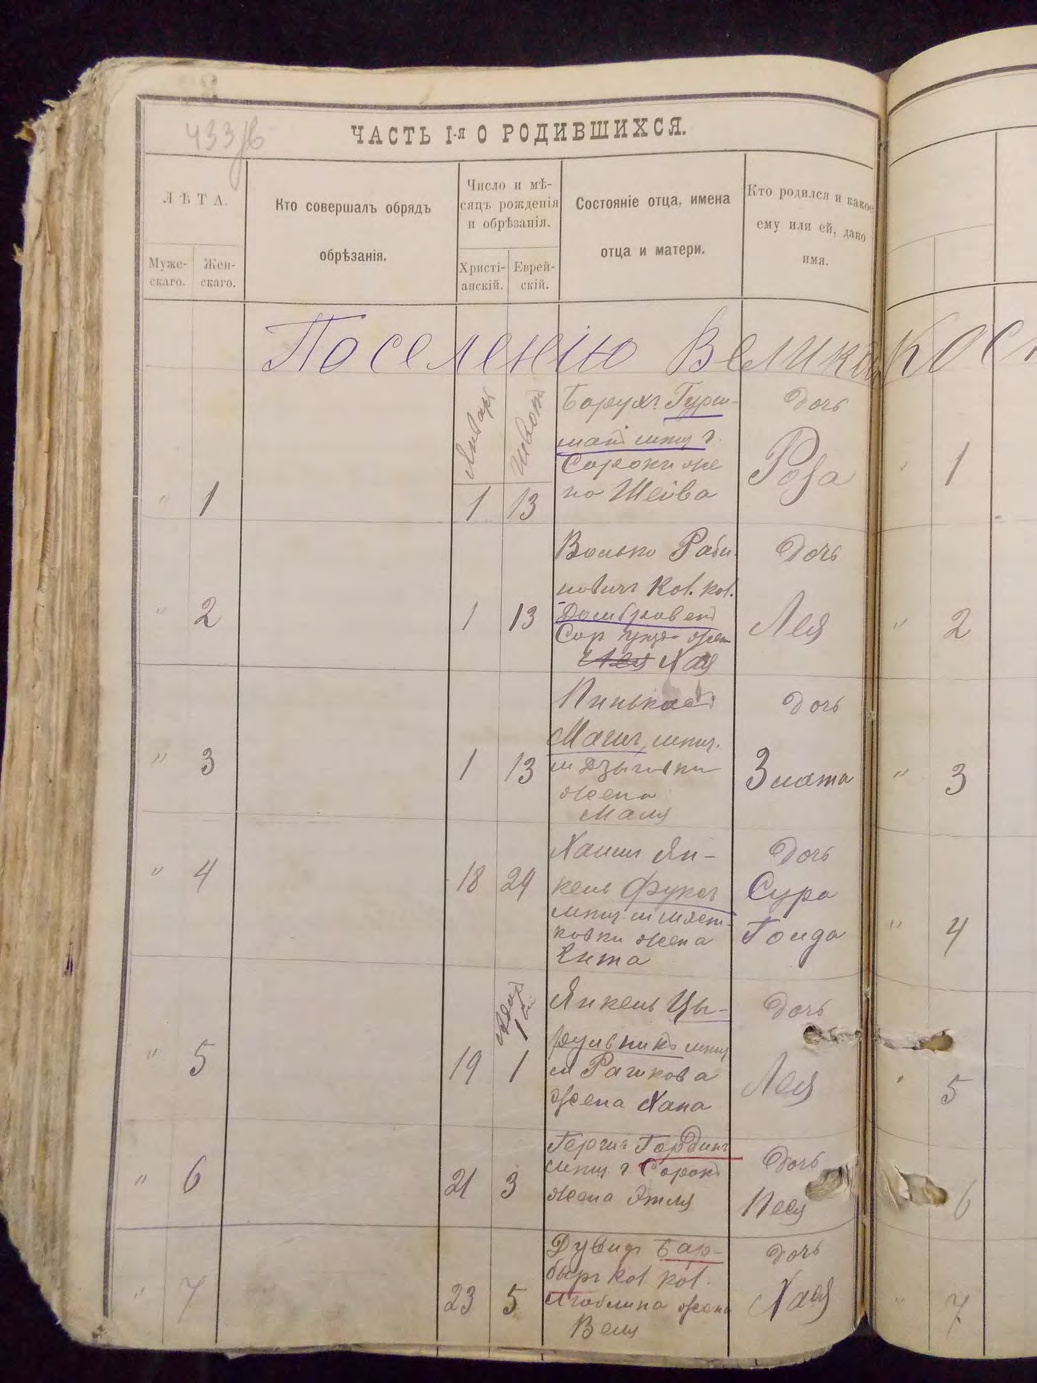 433
ЧАСТЬ I-я О РОДИВШИХСЯ.
ЛѢТА.
Муже-
скаго.
Жен-
скаго.
Кто совершалъ обрядъ
обрѣзанія.
Число и мѣ-
сяцъ рожденія
и обрѣзанія.
Христі-
анскій.
Еврей-
скій.
Состояніе отца, имена
отца и матери.
Кто родился и какое
ему или ей, дано
имя.
Поселенію Велико Кос
Январь
Шватъ
" 1
1 13
Борухъ Гурш-
г.
Сороки же
на Шейва
Дочь
Роза
" 1
" 2
1 13
Волько Раби-
новичъ Кол. кол.
Домбровени
Сор уѣзд жен
Хая
Дочь
Лея
" 2
" 3
1 13
Пинькас
мѣщ.
м Дзыговки
жена
Маля
Дочь
Злата
" 3
" 4
18 24
Хаим Ян-
кель Фуксъ
мѣщ м
ковки жена
Дочь
Сура
Голда
" 4
1
" 5
19 1
Янкель Цы-
рульникъ мѣщ
м Рашкова
жена Хана
Дочь
Лея
" 5
" 6
21 3
Гершъ Гордин
мѣщ г Сорок
жена Этля
Дочь
Песя
6
" 7
23 5
Дувидъ Бар-
быръ Кол кол.
Люблина жена
Веля
Дочь
Хая
" 7